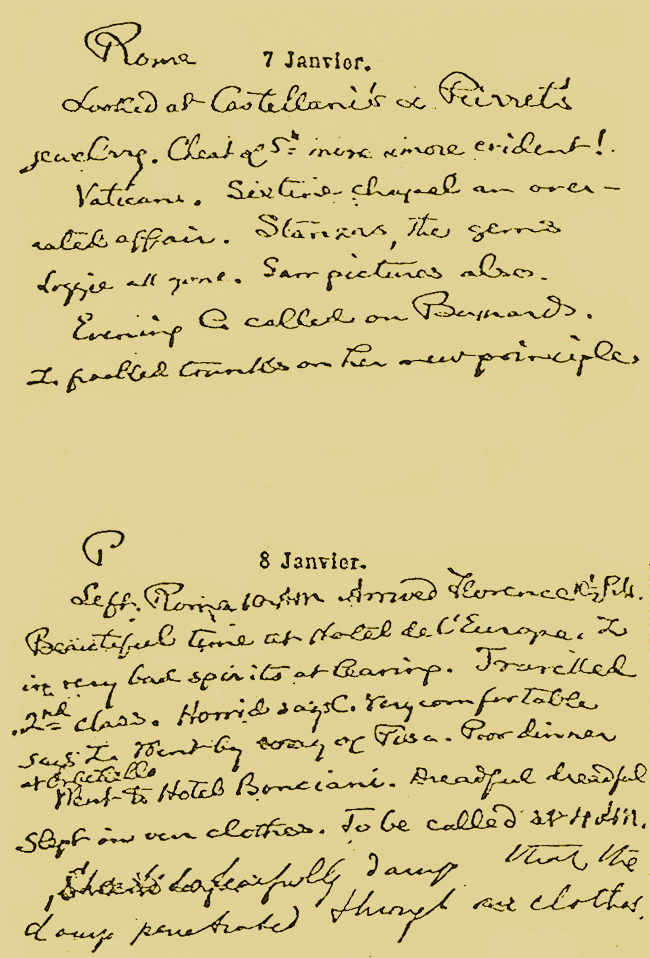 Roma 7 Janvier.
Looked at Castellani's & Pierret's
jewelry. Cheat of St. more & more evident!
Vaticano. Sixtine chapel an over-
rated affair. Stanzas, the gems
Loggie all gone. Same pictures also.
Evening C called on Barnards.
I packed trunks on her new principle.
P 8 Janvier.
Left Roma 10 AM Arrived Florence 10½ P.M.
Beautiful time at Hotel de l'Europe. I
in very bad spirits at leaving. Travelled
2nd class. Horrid says C. Very comfortable
says I. Went by way of Pisa. Poor dinner
at Orbetello
Went to Hotel Bonciani. Dreadful dreadful
Slept in our clothes. To be called at 4 A.M.
Sheets so fearfully damp that the
damp penetrated through our clothes.